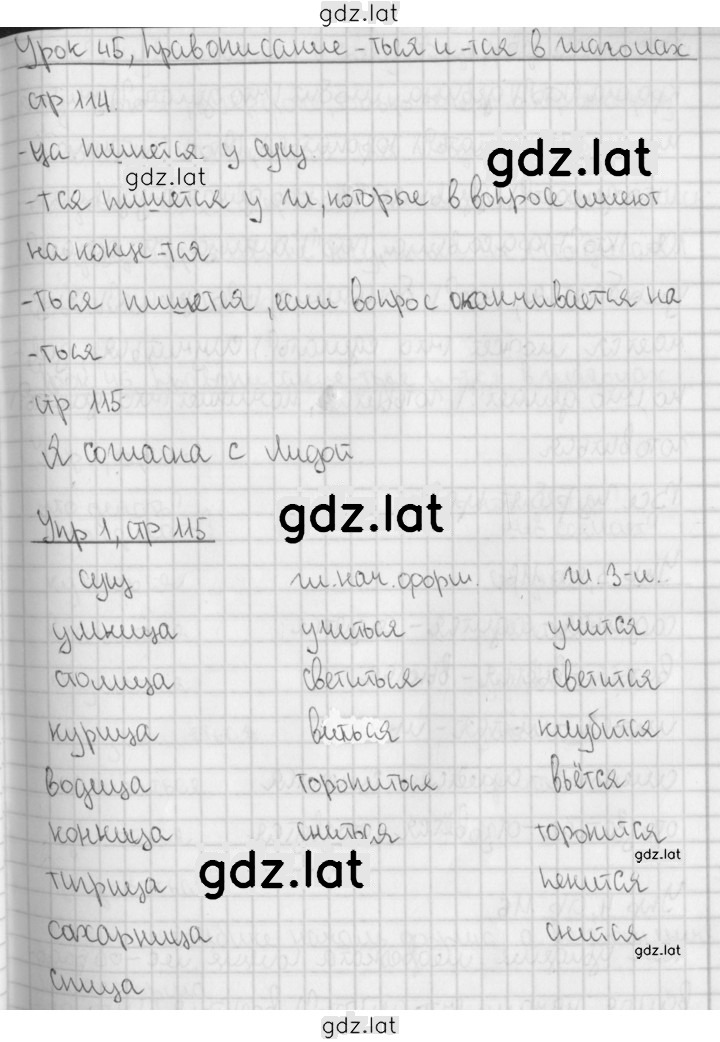 gdz.lat
Урок 45, Правописание -ться и -тся в глаголах
стр 114.
-ца пишется у сущ.
gdz.lat
gdz.lat
-тся пишется у гл, которые в вопросе имеют
на конце -тся
-ться пишется, если вопрос оканчивается на
-ться
стр 115
Я согласна с Лидой
gdz.lat
Упр 1, стр 115
сущ гл. нач. форм. гл. 3-л.
умница учиться учится
столица светиться светится
курица виться клубится
водица торопиться вьётся
конница сниться торопится
gdz.lat
gdz.lat
тигрица пенится
сахарница снится
gdz.lat
спица
gdz.lat